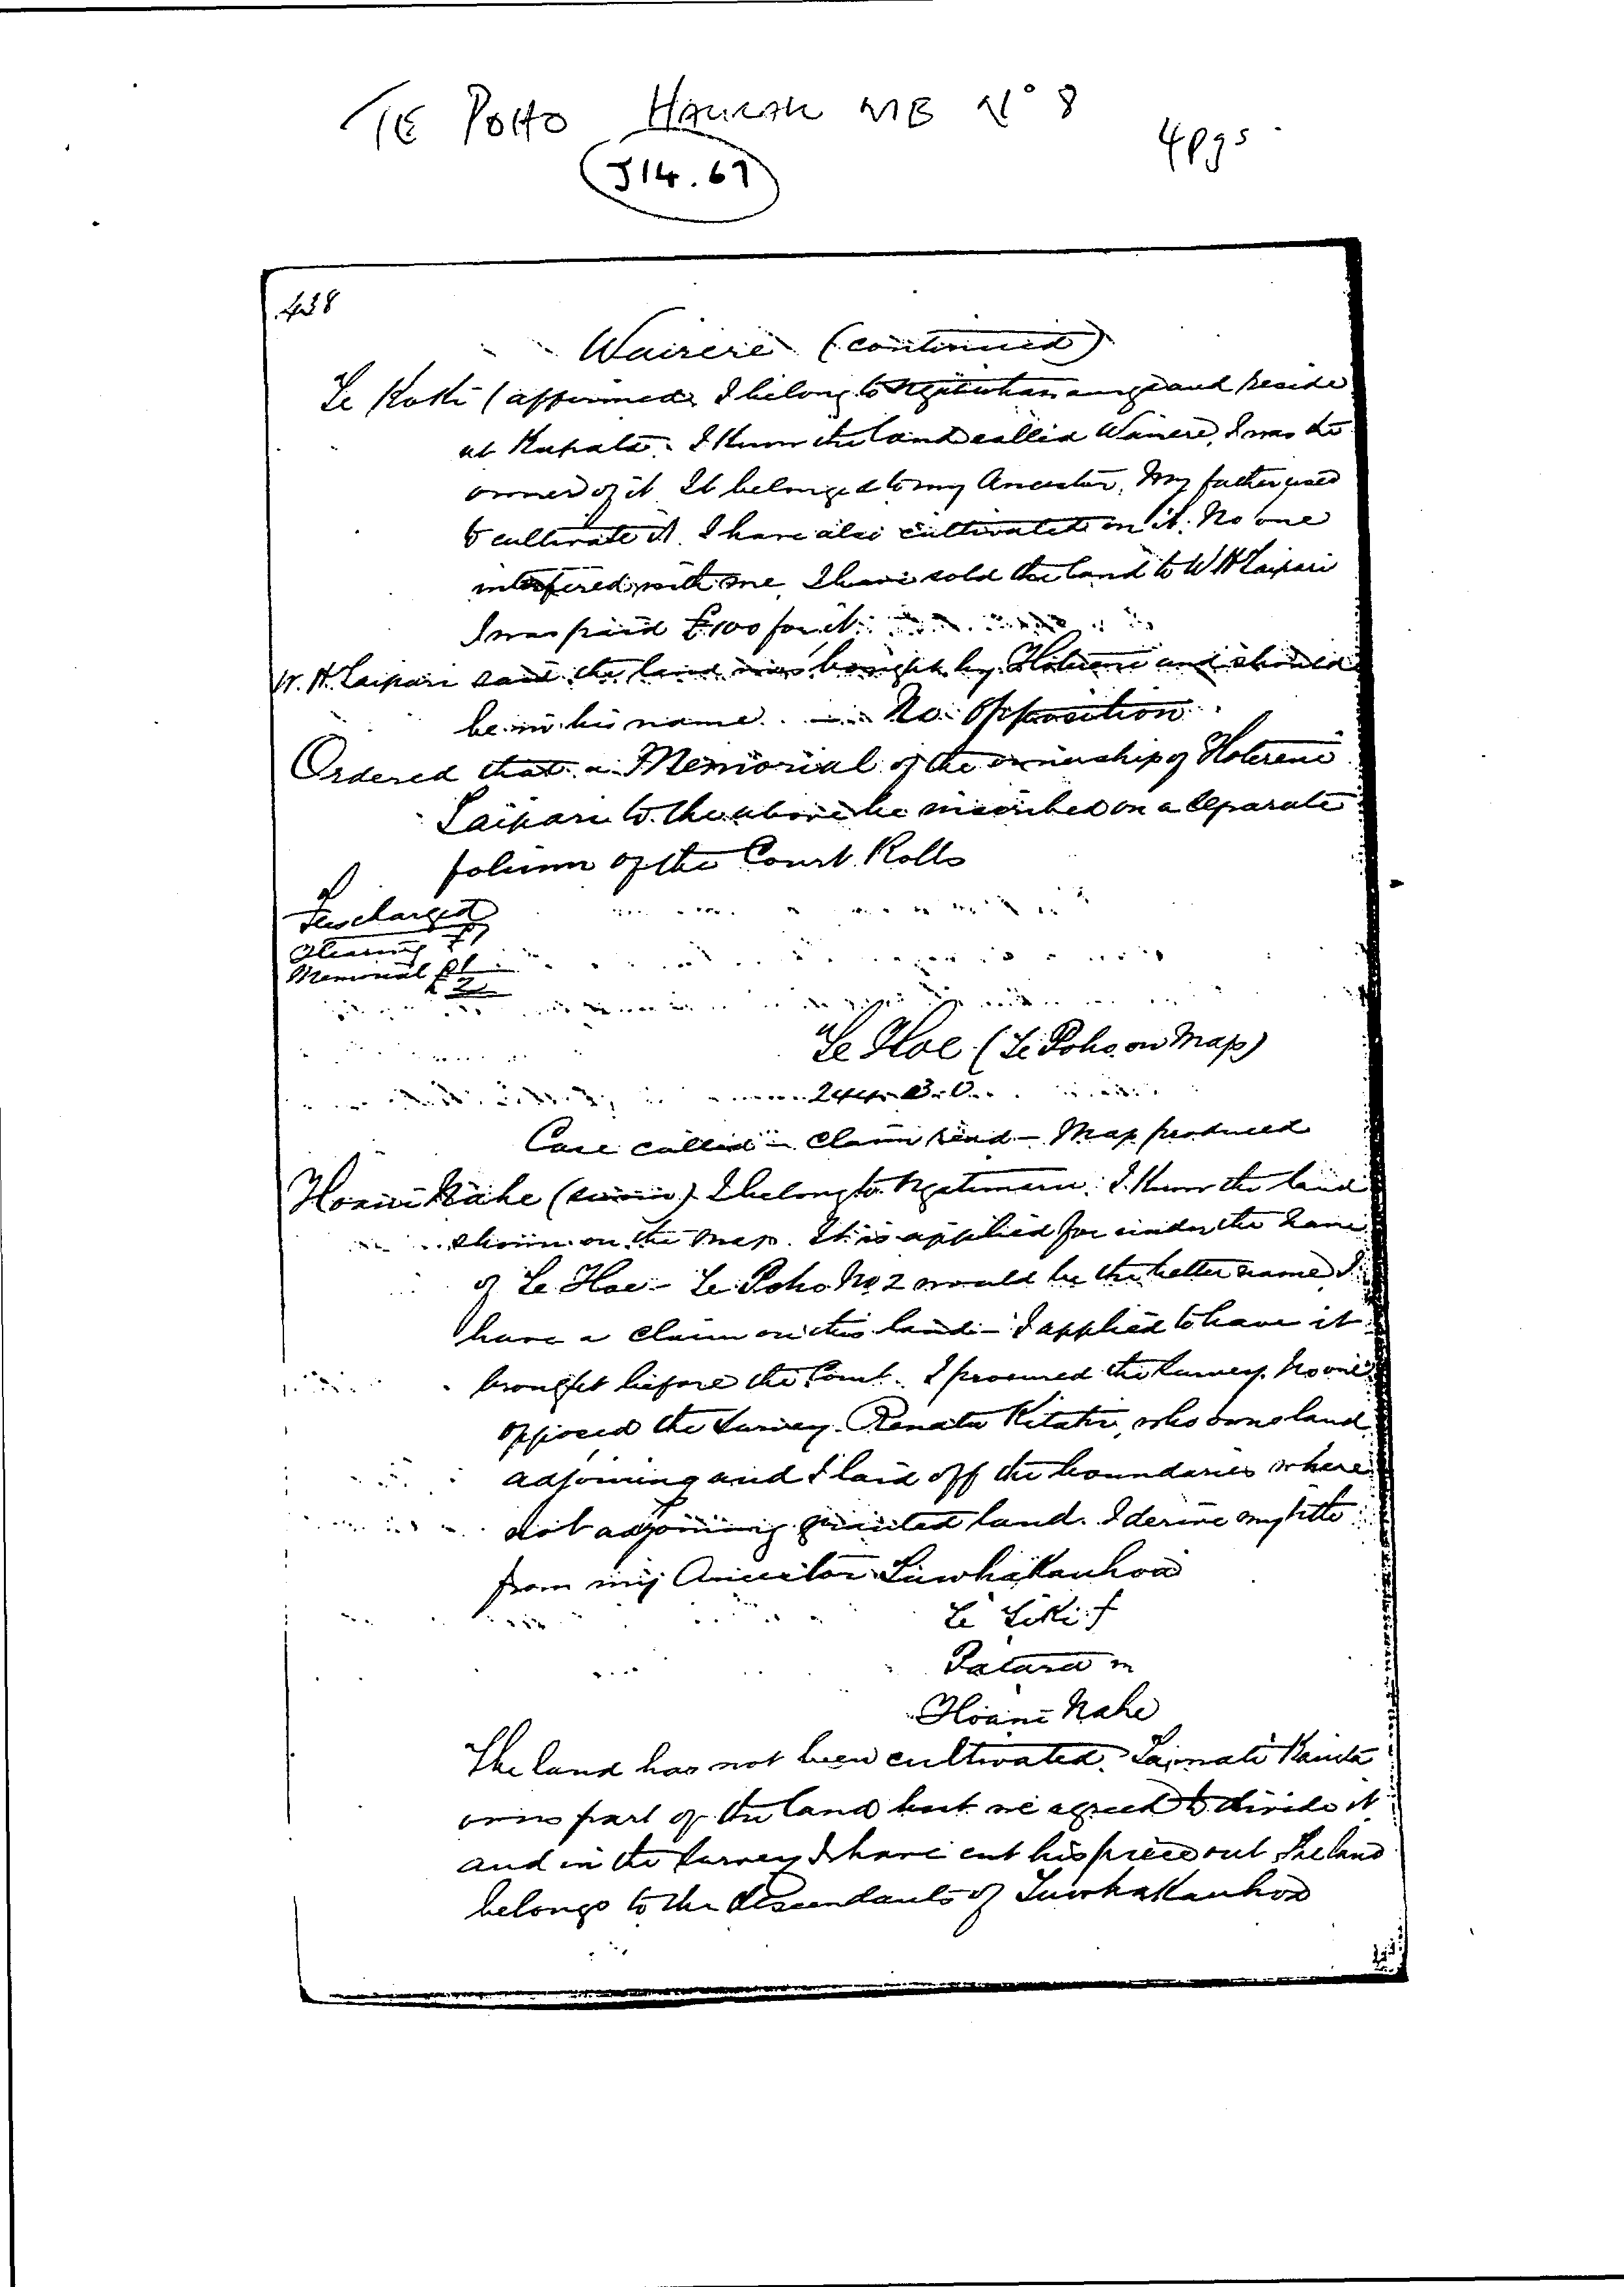 TE POHO HAURAKI MB No 8
4pgs
J14.67
438
Wairere (continued)
Te Koki (affirmed) I belong to Ngatiwhanaunga and reside
at Kupata. I know the land called Wairere, I was the
owner of it. It belonged to my Ancestor, My father used
to cultivate it. I have also cultivated on it. No one
interfered with me, I have sold the land to W H Taipari
I was paid £100 for it.
W. H. Taipari said the land was bought by Hotereni and should
be in his name. No Opposition
Ordered that a Memorial of the ownership of Hotereni
Taipari to the above be inscribed on a separate
folium of the Court Rolls
Fees charged
Hearing £1
Memorial £1
£2
"Te Hoe (Te Poho on Map)
244. 3. 0.
Case called - Claim read - Map produced
Hoani Nahe (sworn) I belong to Ngatimaru. I know the land
shown on the map. It is applied for under the name
of Te Hoe - Te Poho No 2 would be the better name I
have a claim on this land - I applied to have it
brought before the Court. I procured the survey. No one
opposed the survey. Renata, who owns land
adjoining and I laid off the boundaries where
not adjoining granted land. I derive my title
from my Ancestor Tuwhakauhoa
Te Tiki f
Patara m
Hoani Nahe
The land has not been cultivated.
owns part of the land but we agreed to divide it
and in the survey I have cut his piece out The land
belongs to the descendants of Tuwhakauhoa